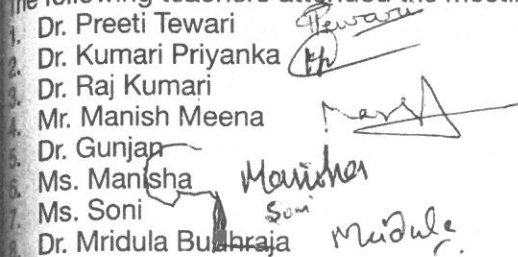 The following teachers attended the meeti
1. Dr. Preeti Tewari Ptewari
2. Dr. Kumari Priyanka Kp
3. Dr. Raj Kumari
4. Mr. Manish Meena
5. Dr. Gunjan
6. Ms. Manisha Manisha
7. Ms. Soni Soni
8. Dr. Mridula Budhraja Mridula